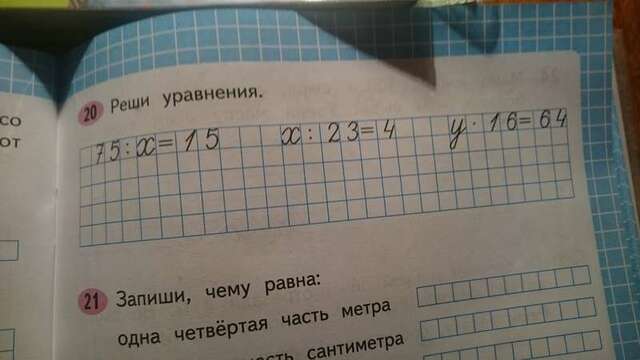 со
от
20 Реши уравнения.
75:x=15 x:23=4 y·16=64
21 Запиши, чему равна:
одна четвёртая часть метра
часть сантиметра